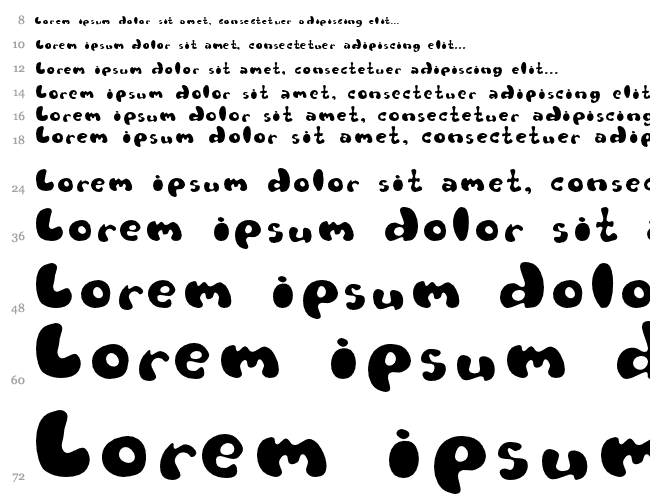 8 Lorem ipsum dolor sit amet, consectetuer adipiscing elit...
10 Lorem ipsum dolor sit amet, consectetuer adipiscing elit...
12 Lorem ipsum dolor sit amet, consectetuer adipiscing elit...
14 Lorem ipsum dolor sit amet, consectetuer adipiscing elit
16 Lorem ipsum dolor sit amet, consectetuer adipiscing
18 Lorem ipsum dolor sit amet, consectetuer adip
24 Lorem ipsum dolor sit amet, consec
36 Lorem ipsum dolor sit
48 Lorem ipsum dolo
60 Lorem ipsum d
72 Lorem ipsum